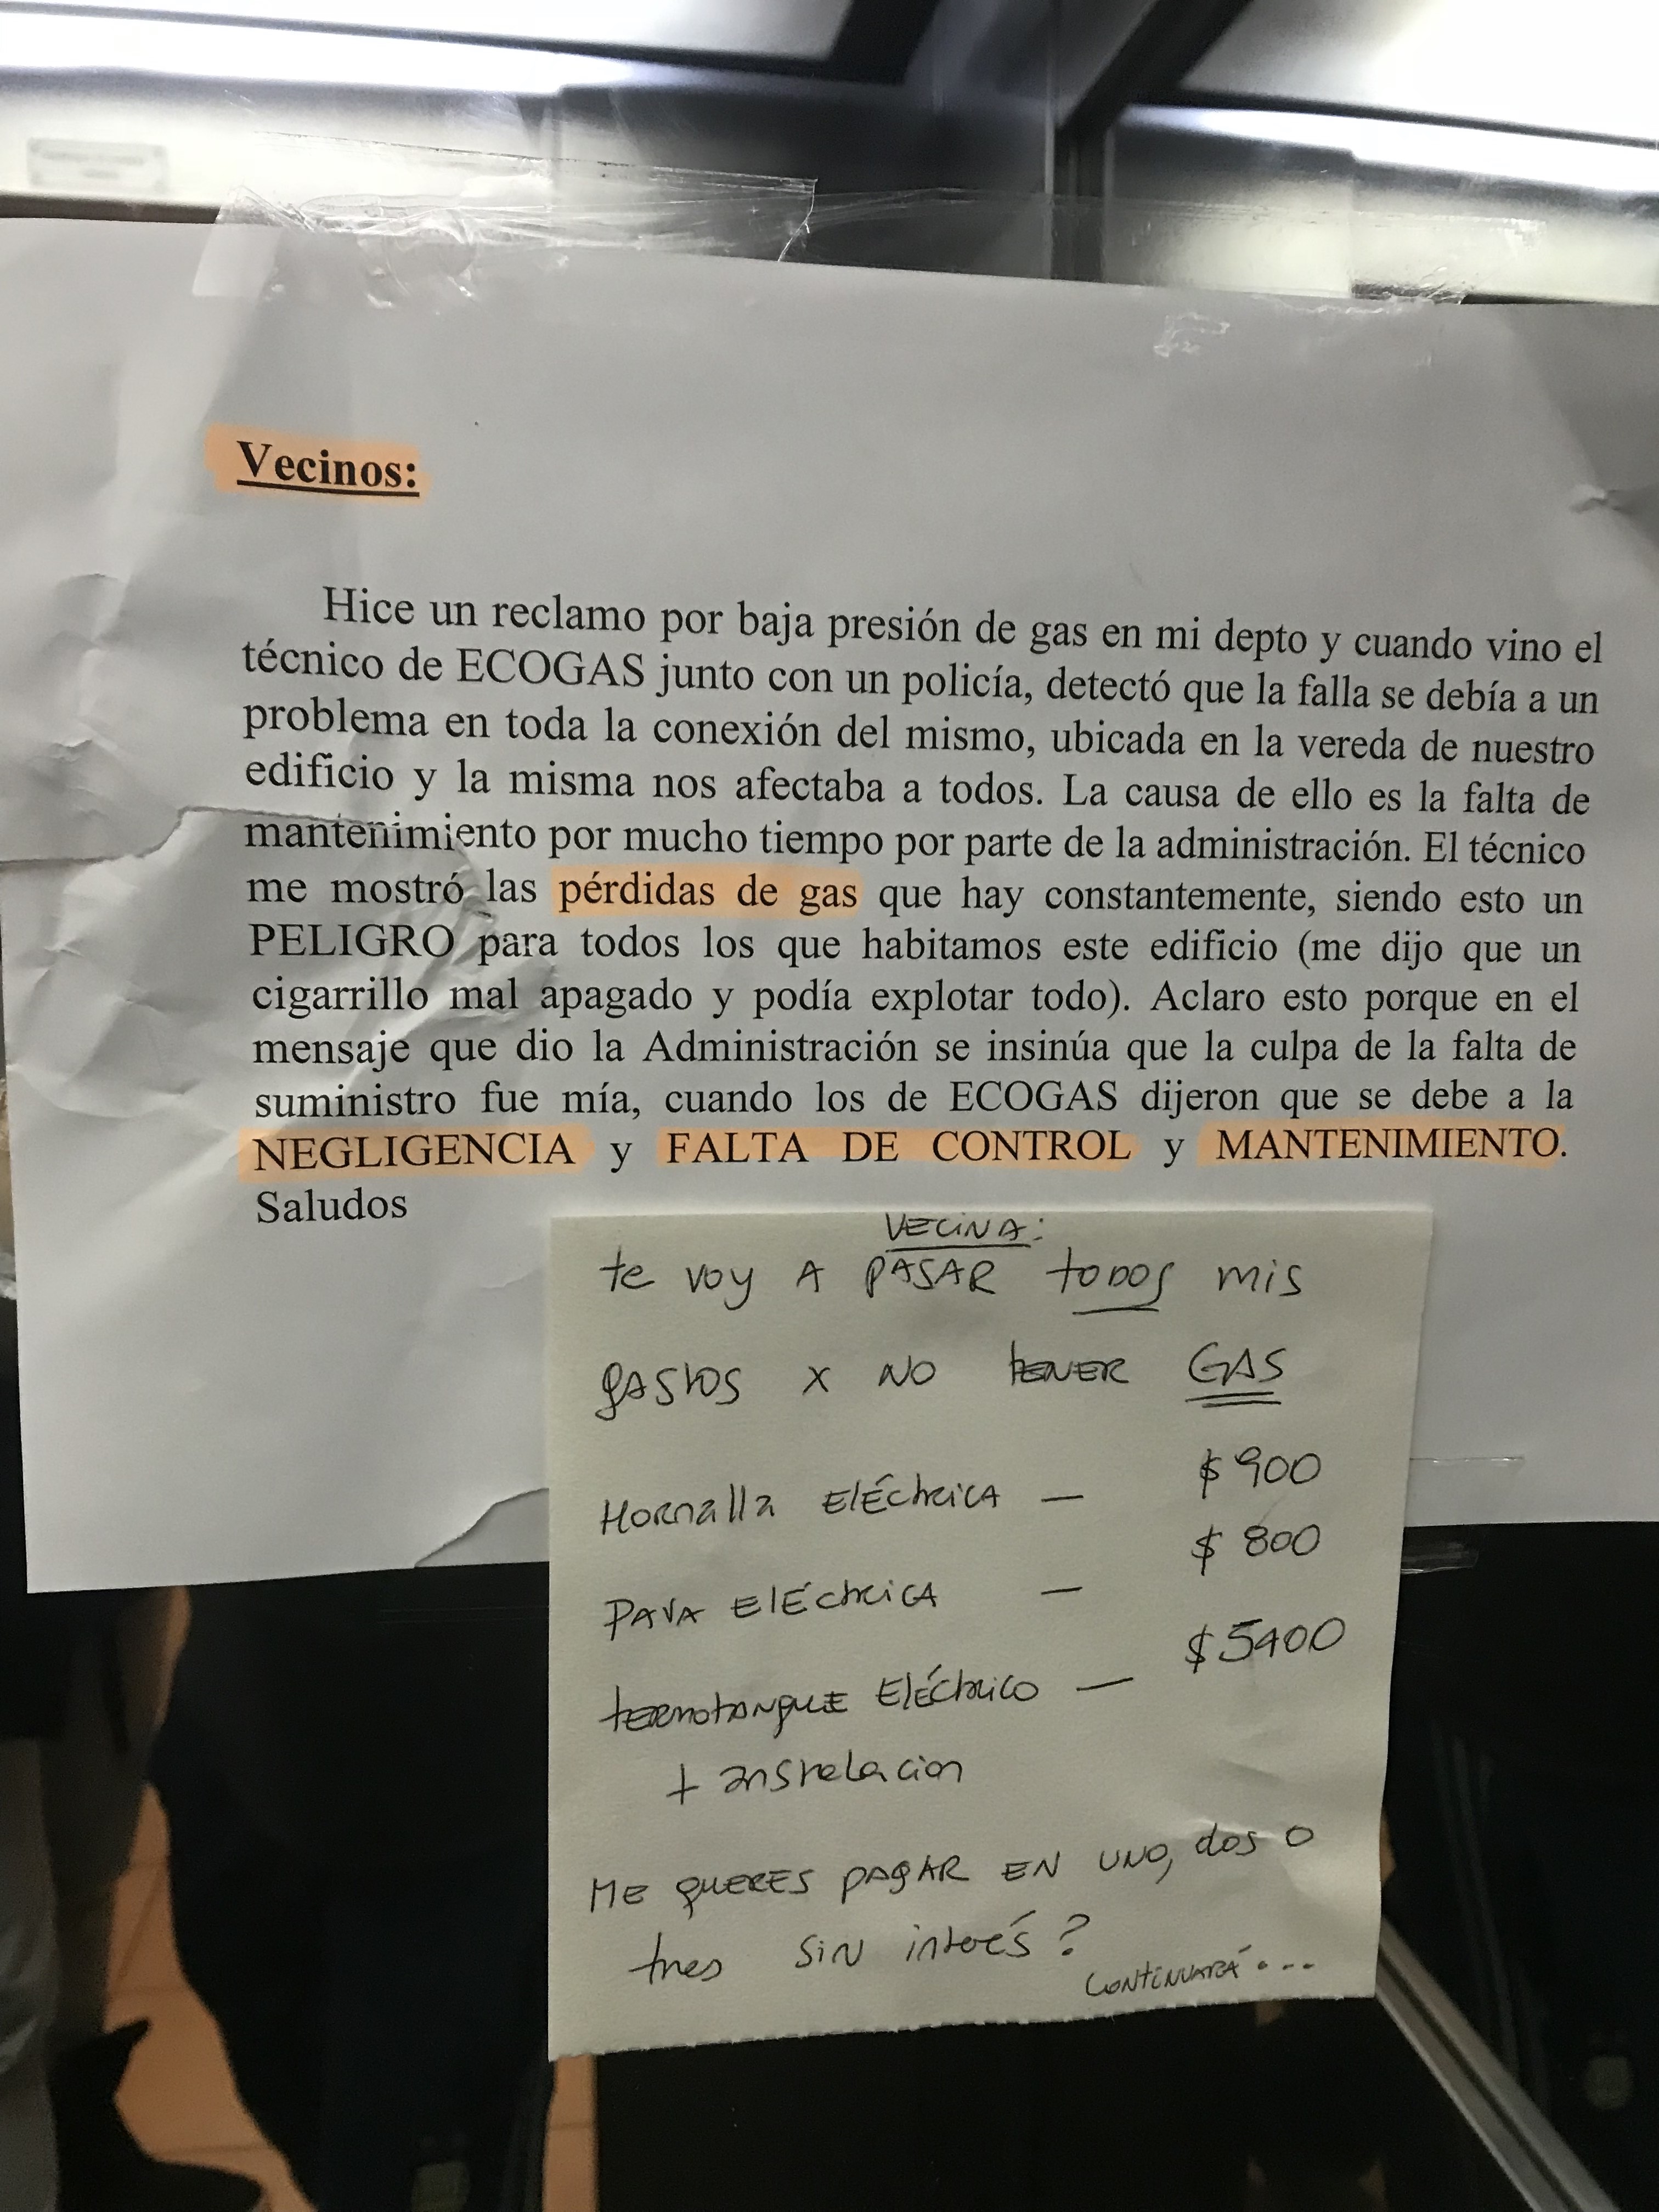 Vecinos:
Hice un reclamo por baja presión de gas en mi depto y cuando vino el
técnico de ECOGAS junto con un policía, detectó que la falla se debía a un
problema en toda la conexión del mismo, ubicada en la vereda de nuestro
edificio y la misma nos afectaba a todos. La causa de ello es la falta de
mantenimiento por mucho tiempo por parte de la administración. El técnico
me mostró las pérdidas de gas que hay constantemente, siendo esto un
PELIGRO para todos los que habitamos este edificio (me dijo que un
cigarrillo mal apagado y podía explotar todo). Aclaro esto porque en el
mensaje que dio la Administración se insinúa que la culpa de la falta de
suministro fue mía, cuando los de ECOGAS dijeron que se debe a la
NEGLIGENCIA y FALTA DE CONTROL y MANTENIMIENTO.
Saludos
VECINA:
te voy A PASAR todos mis
gastos x NO tENER GAS
Hornalla Eléctrica — $900
PAVA Eléctrica — $800
termotanque Eléctrico — $5400
+ instalacion
ME QUERES PAGAR EN UNO, dos o
tres SIN interés?
CONTINUARÁ...